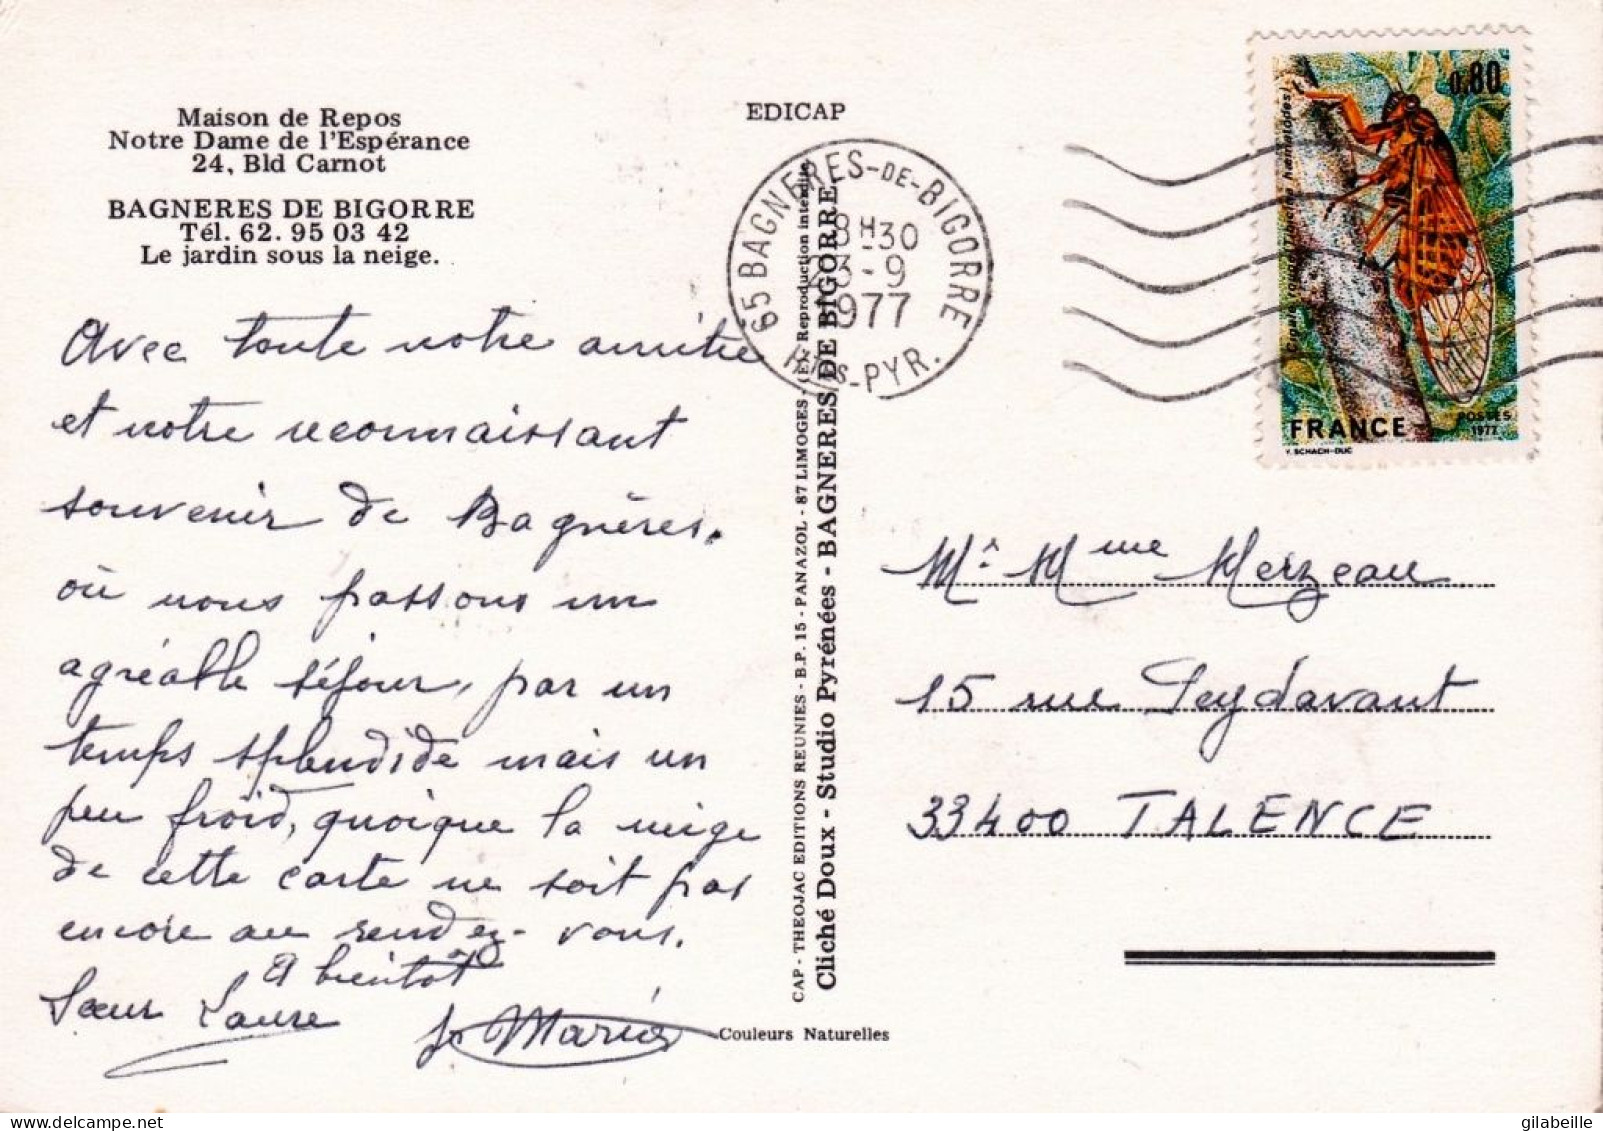 Maison de Repos
Notre Dame de l'Espérance
24, Bld Carnot
BAGNERES DE BIGORRE
Tél. 62. 95 03 42
Le jardin sous la neige.
EDICAP
65 BAGNERES-DE-BIGORRE
8H-30
23-9
1977
HTES-PYR.
0,80
FRANCE
POSTES
1977
Y. SCHACH-DUC
Avec toute notre amitié
et notre reconnaissant
souvenir de Bagnères.
où nous passons un
agréable séjour, par un
temps splendide mais un
peu froid, quoique la neige
de cette carte ne soit pas
encore au rendez-vous.
A bientôt
Sœur Laure
Sr Marie
CAP - THEOJAC EDITIONS REUNIES - B.P. 15 - PANAZOL - 87 LIMOGES - (Ex. Reproduction interdite
Cliché Doux - Studio Pyrénées - BAGNERES DE BIGORRE
Couleurs Naturelles
Mr Mme Merzeau
15 rue Peydavant
33400 TALENCE
gilabeille